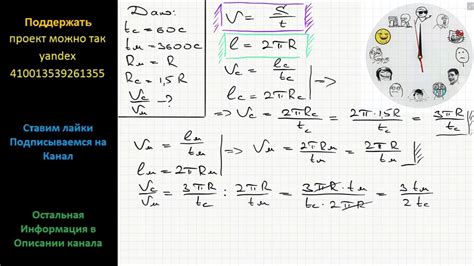 Поддержать
проект можно так
yandex
410013539261355
Ставим лайки
Подписываемся на
Канал
Остальная
Информация в
Описании канала
Дано:
tc = 60с
tм = 3600с
Rм = R
Rc = 1,5R
Vc/Vм - ?
V = S/t
l = 2πR
Vc = lc/tc
lc = 2πRc
=> Vc = 2πRc/tc = 2π·1,5R/tc = 3πR/tc
Vм = lм/tм
lм = 2πRм
=> Vм = 2πRм/tм = 2πR/tм
Vc/Vм = 3πR/tc : 2πR/tм = 3πR·tм/tc·2πR = 3tм/2tc